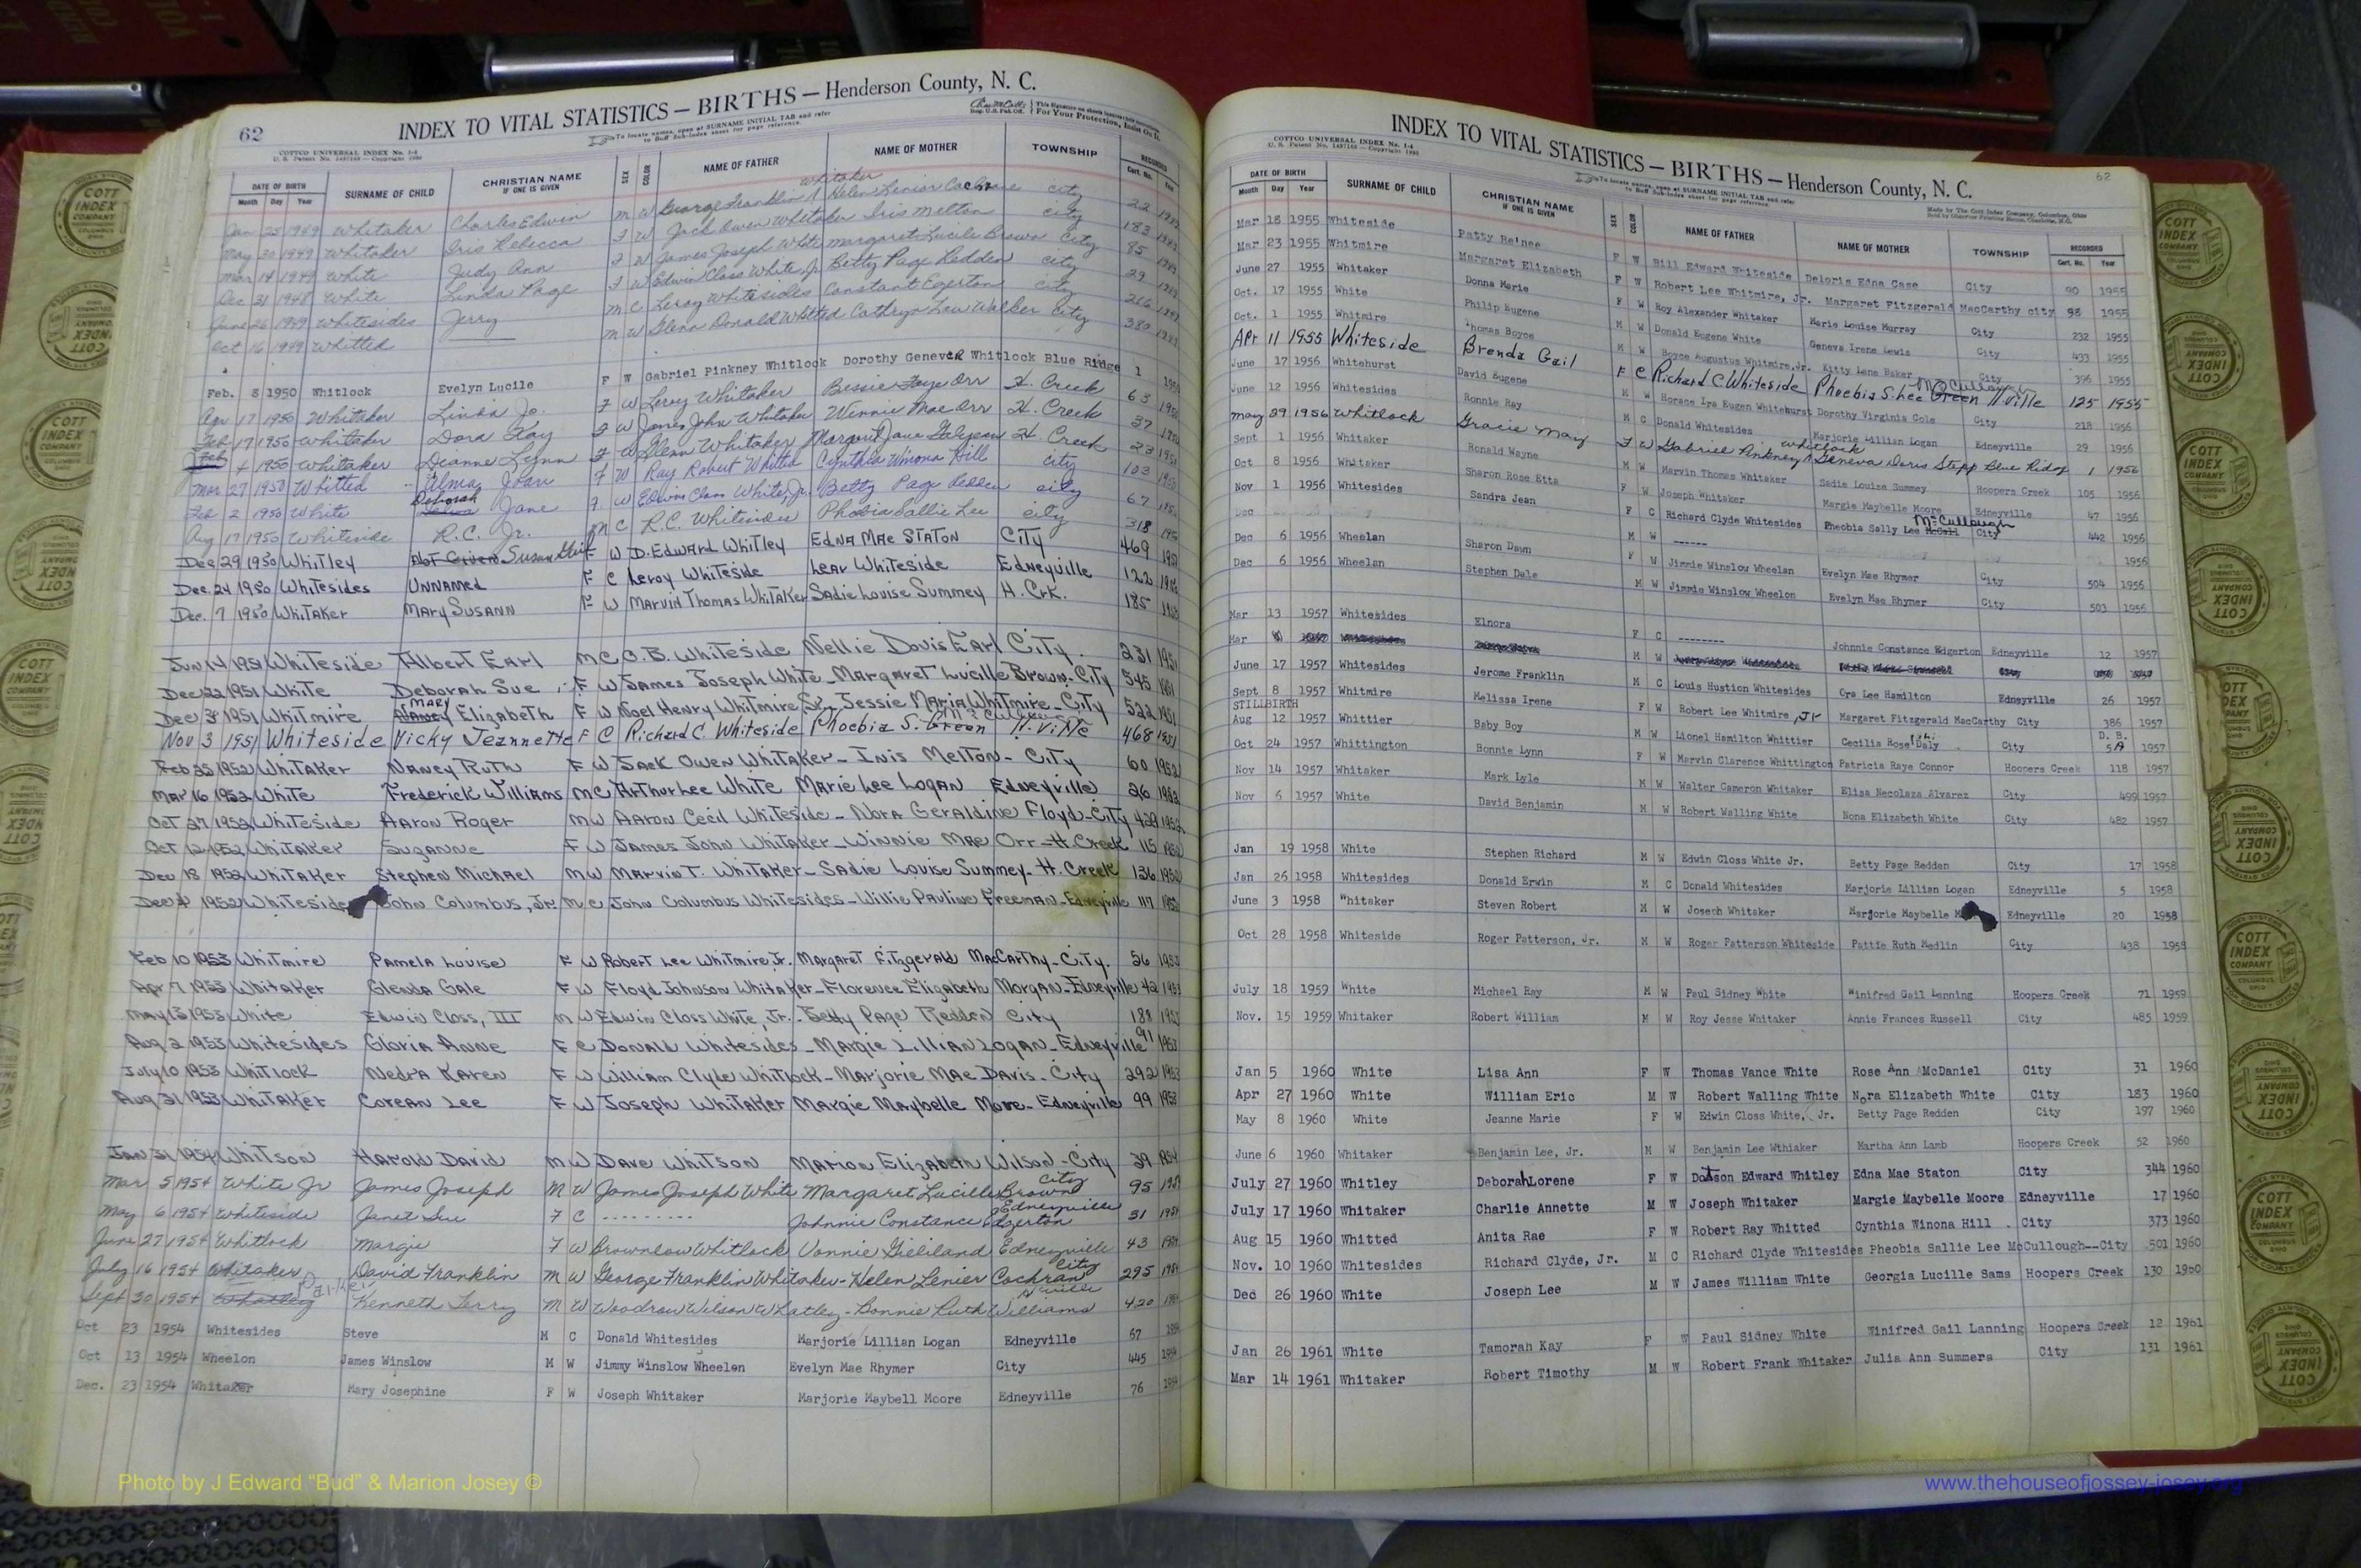 62
INDEX TO VITAL STATISTICS — BIRTHS — Henderson County, N. C.
COTTCO UNIVERSAL INDEX No. 1-4
U. S. Patent No. 1487168 — Copyright 1950
To locate names, open at SURNAME INITIAL TAB and refer
to Buff Sub-index sheet for page reference.
For Your Protection, Insist On It.
DATE OF BIRTH SURNAME OF CHILD CHRISTIAN NAME IF ONE IS GIVEN SEX COLOR NAME OF FATHER NAME OF MOTHER TOWNSHIP RECORDED
Month Day Year Cert. No. Year
Jan 25 1949 Whitaker Charles Edwin M W George Franklin Whitaker Helen Lenior Cochrane city 22
May 30 1949 Whitaker Iris Rebecca F W Jack Owen Whitaker Iris Melton city 183
Mar 14 1949 White Judy Ann F W James Joseph White Margaret Lucile Brown city 85
Dec 31 1948 White Linda Page F W Edwin Closs White Jr. Betty Page Redden city 29
June 26 1949 Whitesides Jerry M C Leroy Whitesides Constant Egerton city 266
Oct 16 1949 Whitted M W Glenn Donald Whitted Cathryn Lou Walker city 380
Feb. 8 1950 Whitlock Evelyn Lucile F W Gabriel Pinkney Whitlock Dorothy Genever Whitlock Blue Ridge 1 1950
Apr 17 1950 Whitaker Linda Jo. F W Leroy Whitaker Bessie Faye Orr H. Creek 63
Feb 17 1950 Whitaker Dora Kay F W James John Whitaker Winnie Mae Orr H. Creek 37
4 1950 Whitaker Dianne Lynn F W Glenn Whitaker Margaret Jane H. Creek 23
Mar 27 1950 Whitted Alma Joan F W Ray Robert Whitted Cynthia Winona Hill city 103
Feb 2 1950 White Deborah Jane F W Edwin Closs White, Jr. Betty Page Redden city 67
Aug 17 1950 Whiteside R.C. Jr. M C R.C. Whitesides Phobia Sallie Lee city 318
Dec 29 1950 Whitley Not Given Susan Gail F W D. Edward Whitley Edna Mae Staton City 469
Dec. 24 1950 Whitesides Unnamed F C Leroy Whiteside Lear Whiteside Edneyville 122
Dec. 7 1950 Whitaker Mary Susann F W Marvin Thomas Whitaker Sadie Louise Summey H. Crk. 185
Jun 14 1951 Whiteside Albert Earl M C C.B. Whiteside Nellie Dovis Earl City. 231 1951
Dec 22 1951 White Deborah Sue F W James Joseph White - Margaret Lucille Brown - City 545 1951
Dec 3 1951 Whitmire Mary Elizabeth F W Noel Henry Whitmire, Sr. Jessie Maria Whitmire - City 522 1951
Nov 3 1951 Whiteside Vicky Jeannette F C Richard C. Whiteside Phoebia S. Green H. Ville 468 1951
Feb 25 1952 Whitaker Nancy Ruth F W Jack Owen Whitaker - Inis Melton - City 60 1952
Mar 16 1952 White Frederick Williams M C Arthur Lee White Marie Lee Logan Edneyville 26 1952
Oct 27 1952 Whiteside Aaron Roger M W Aaron Cecil Whiteside - Nora Geraldine Floyd - City 429 1952
Oct 12 1952 Whitaker Suzanne F W James John Whitaker - Winnie Mae Orr - H. Creek 115 1952
Dec 13 1952 Whitaker Stephen Michael M W Marvin T. Whitaker - Sadie Louise Summey - H. Creek 136 1952
Dec 1952 Whitesides John Columbus, Jr. M C John Columbus Whitesides - Willie Pauline Freeman - Edneyville 117 1952
Feb 10 1953 Whitmire Pamela Louise F W Robert Lee Whitmire, Jr. Margaret Fitzgerald MacCarthy - City. 56 1953
Apr 7 1953 Whitaker Glenda Gale F W Floyd Johnson Whitaker - Florence Elizabeth Morgan - Edneyville 42 1953
May 13 1953 White Edwin Closs, III M W Edwin Closs White, Jr. - Betty Page Redden City 188 1953
Aug 2 1953 Whitesides Gloria Anne F C Donald Whitesides - Margie Lillian Logan - Edneyville 91 1953
July 10 1953 Whitlock Nedra Karen F W William Clyde Whitlock - Marjorie Mae Davis - City 292 1953
Aug 31 1953 Whitaker Corean Lee F W Joseph Whitaker Margie Maybelle More - Edneyville 99 1953
Jan 31 1954 Whitson Harold David M W Dave Whitson Marion Elizabeth Wilson - City 39 1954
Mar 5 1954 White Jr James Joseph M W James Joseph White Margaret Lucille Brown City 95 1954
May 6 1954 Whiteside Janet Sue F C --------- Johnnie Constance Edgerton Edneyville 31 1954
June 27 1954 Whitlock Margie F W Brownlow Whitlock Vonnie Gilliland Edneyville 43 1954
July 16 1954 Whitaker David Franklin M W George Franklin Whitaker - Helen Lenier Cochran City 295 1954
Sept 30 1954 Whatley Kenneth Terry M W Woodrow Wilson Whatley - Bonnie Ruth Williams H'ville 420 1954
Oct 23 1954 Whitesides Steve M C Donald Whitesides Marjorie Lillian Logan Edneyville 67 1954
Oct 13 1954 Wheelon James Winslow M W Jimmy Winslow Wheelen Evelyn Mae Rhymer City 445 1954
Dec. 23 1954 Whitaker Mary Josephine F W Joseph Whitaker Marjorie Maybell Moore Edneyville 76 1954
Photo by J Edward “Bud” & Marion Josey ©
INDEX TO VITAL STATISTICS — BIRTHS — Henderson County, N. C.
62
COTTCO UNIVERSAL INDEX No. 1-4
U. S. Patent No. 1487168 — Copyright 1950
To locate names, open at SURNAME INITIAL TAB and refer
to Buff Sub-index sheet for page reference.
Made by The Cott Index Company, Columbus, Ohio
Sold by Observer Printing House, Charlotte, N.C.
DATE OF BIRTH SURNAME OF CHILD CHRISTIAN NAME IF ONE IS GIVEN SEX COLOR NAME OF FATHER NAME OF MOTHER TOWNSHIP RECORDED
Month Day Year Cert. No. Year
Mar 18 1955 Whiteside Patty Reinee F W Bill Edward Whiteside Deloris Edna Case City 90 1955
Mar 23 1955 Whitmire Margaret Elizabeth F W Robert Lee Whitmire, Jr. Margaret Fitzgerald MacCarthy city 98 1955
June 27 1955 Whitaker Donna Marie F W Roy Alexander Whitaker Marie Louise Murray City 232 1955
Oct. 17 1955 White Philip Eugene M W Donald Eugene White Geneva Irene Lewis City 433 1955
Oct. 1 1955 Whitmire Thomas Boyce M W Boyce Augustus Whitmire, Jr. Kitty Lane Baker City 396 1955
Apr 11 1955 Whiteside Brenda Gail F C Richard C Whiteside Phoebia S. Lee Green McCullough H'ville 125 1955
June 17 1956 Whitehurst David Eugene M W Horace Ira Eugen Whitehurst Dorothy Virginia Cole City 218 1956
June 12 1956 Whitesides Ronnie Ray M C Donald Whitesides Marjorie Lillian Logan Edneyville 29 1956
May 29 1956 Whitlock Gracie May F W Gabriel Pinkney Whitlock Geneva Doris Stepp Blue Ridge 1 1956
Sept 1 1956 Whitaker Ronald Wayne M W Marvin Thomas Whitaker Sadie Louise Summey Hoopers Creek 105 1956
Oct 8 1956 Whitaker Sharon Rose Etta F W Joseph Whitaker Margie Maybelle Moore Edneyville 47 1956
Nov 1 1956 Whitesides Sandra Jean F C Richard Clyde Whitesides Pheobia Sally Lee McCullough City 442 1956
Dec M W ------ 1956
Dec 6 1956 Wheelan Sharon Dawn F W Jimmie Winslow Wheelan Evelyn Mae Rhymer City 504 1956
Dec 6 1956 Wheelan Stephen Dale M W Jimmie Winslow Wheelon Evelyn Mae Rhymer City 503 1956
Mar 13 1957 Whitesides Elnora F C -------- Johnnie Constance Edgerton Edneyville 12 1957
Mar M W
June 17 1957 Whitesides Jerome Franklin M C Louis Hustion Whitesides Ora Lee Hamilton Edneyville 26 1957
Sept 8 1957 Whitmire Melissa Irene F W Robert Lee Whitmire, Jr Margaret Fitzgerald MacCarthy City 386 1957
STILLBIRTH
Aug 12 1957 Whittier Baby Boy M W Lionel Hamilton Whittier Cecilia Rose Daly City D. B. 1957
Oct 24 1957 Whittington Bonnie Lynn F W Marvin Clarence Whittington Patricia Raye Connor Hoopers Creek 118 1957
Nov 14 1957 Whitaker Mark Lyle M W Walter Cameron Whitaker Elisa Necolaza Alvarez City 499 1957
Nov 6 1957 White David Benjamin M W Robert Walling White Nona Elizabeth White City 482 1957
Jan 19 1958 White Stephen Richard M W Edwin Closs White Jr. Betty Page Redden City 17 1958
Jan 26 1958 Whitesides Donald Erwin M C Donald Whitesides Marjorie Lillian Logan Edneyville 5 1958
June 3 1958 Whitaker Steven Robert M W Joseph Whitaker Marjorie Maybelle Edneyville 20 1958
Oct 28 1958 Whiteside Roger Patterson, Jr. M W Roger Patterson Whiteside Pattie Ruth Medlin City 438 1958
July 18 1959 White Michael Ray M W Paul Sidney White Winifred Gail Lanning Hoopers Creek 71 1959
Nov. 15 1959 Whitaker Robert William M W Roy Jesse Whitaker Annie Frances Russell City 485 1959
Jan 5 1960 White Lisa Ann F W Thomas Vance White Rose Ann McDaniel City 31 1960
Apr 27 1960 White William Eric M W Robert Walling White Nora Elizabeth White City 183 1960
May 8 1960 White Jeanne Marie F W Edwin Closs White, Jr. Betty Page Redden City 197 1960
June 6 1960 Whitaker Benjamin Lee, Jr. M W Benjamin Lee Wthiaker Martha Ann Lamb Hoopers Creek 52 1960
July 27 1960 Whitley Deborah Lorene F W Dotson Edward Whitley Edna Mae Staton City 344 1960
July 17 1960 Whitaker Charlie Annette M W Joseph Whitaker Margie Maybelle Moore Edneyville 17 1960
Aug 15 1960 Whitted Anita Rae F W Robert Ray Whitted Cynthia Winona Hill . City 373 1960
Nov. 10 1960 Whitesides Richard Clyde, Jr. M C Richard Clyde Whitesides Pheobia Sallie Lee McCullough--City 501 1960
Dec 26 1960 White Joseph Lee M W James William White Georgia Lucille Sams Hoopers Creek 130 1960
Jan 26 1961 White Tamorah Kay F W Paul Sidney White Winifred Gail Lanning Hoopers Creek 12 1961
Mar 14 1961 Whitaker Robert Timothy M W Robert Frank Whitaker Julia Ann Summers City 131 1961
www.thehouseofjossey-josey.org
COTT INDEX COMPANY COLUMBUS OHIO